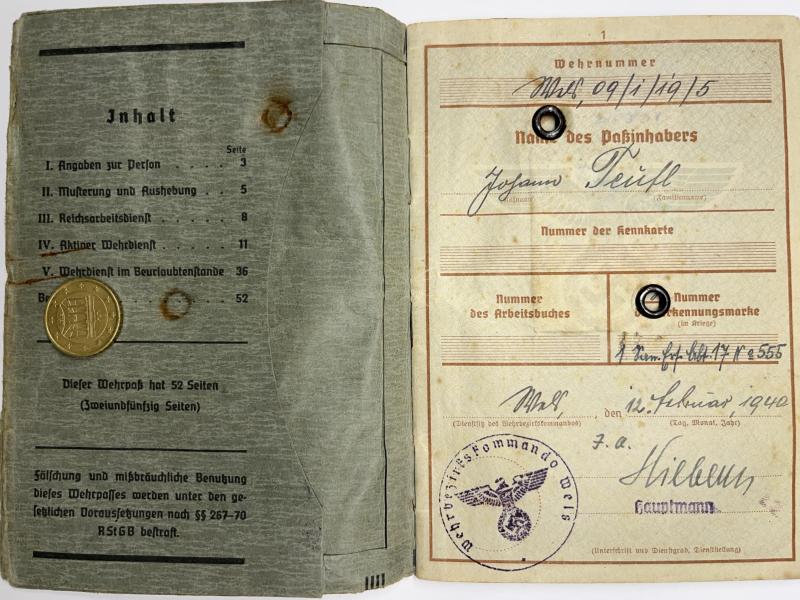 Inhalt
Seite
I. Angaben zur Person . . . . 3
II. Musterung und Aushebung . . 5
III. Reichsarbeitsdienst . . . . . 8
IV. Aktiver Wehrdienst . . . . . 11
V. Wehrdienst im Beurlaubtenstande 36
52
Dieser Wehrpaß hat 52 Seiten
(Zweiundfünfzig Seiten)
Fälschung und mißbräuchliche Benutzung
dieses Wehrpasses werden unter den ge-
setzlichen Voraussetzungen nach §§ 267-70
RStGB bestraft.
1
Wehrnummer
Wels, 09/1/19/5
Name des Paßinhabers
Johann Teufl
(Familienname)
Nummer der Kennkarte
Nummer
des Arbeitsbuches
Nummer
der Erkennungsmarke
(im Kriege)
1 San. Ers. Abt. 17 N. 555
Wels, den 12. Februar, 1940
(Dienstsitz des Wehrbezirkskommandos) (Tag, Monat, Jahr)
J. A.
Hauptmann
Wehrbezirkskommando Wels
(Unterschrift und Dienstgrad, Dienststellung)